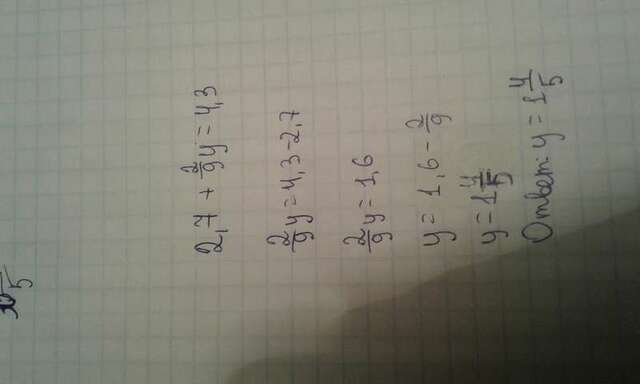 5
2,7 + 2/9 y = 4,3
2/9 y = 4,3 - 2,7
2/9 y = 1,6
y = 1,6 - 2/9
y = 1 4/5
Ответ: y = 1 4/5